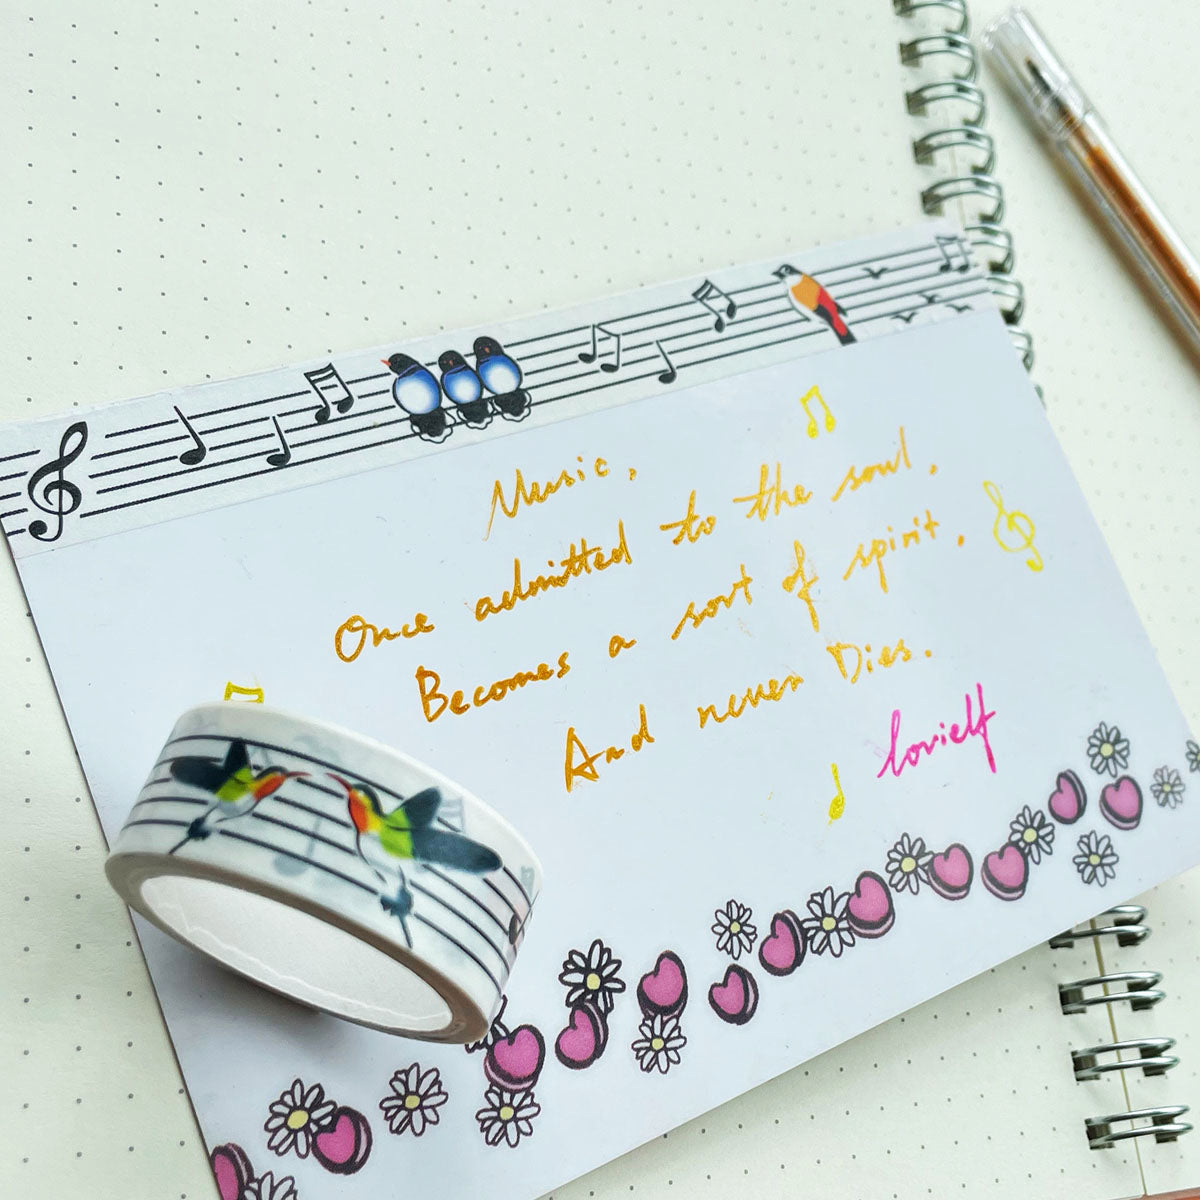 Music,
Once admitted to the soul,
Becomes a sort of spirit,
And never Dies.
lovielf